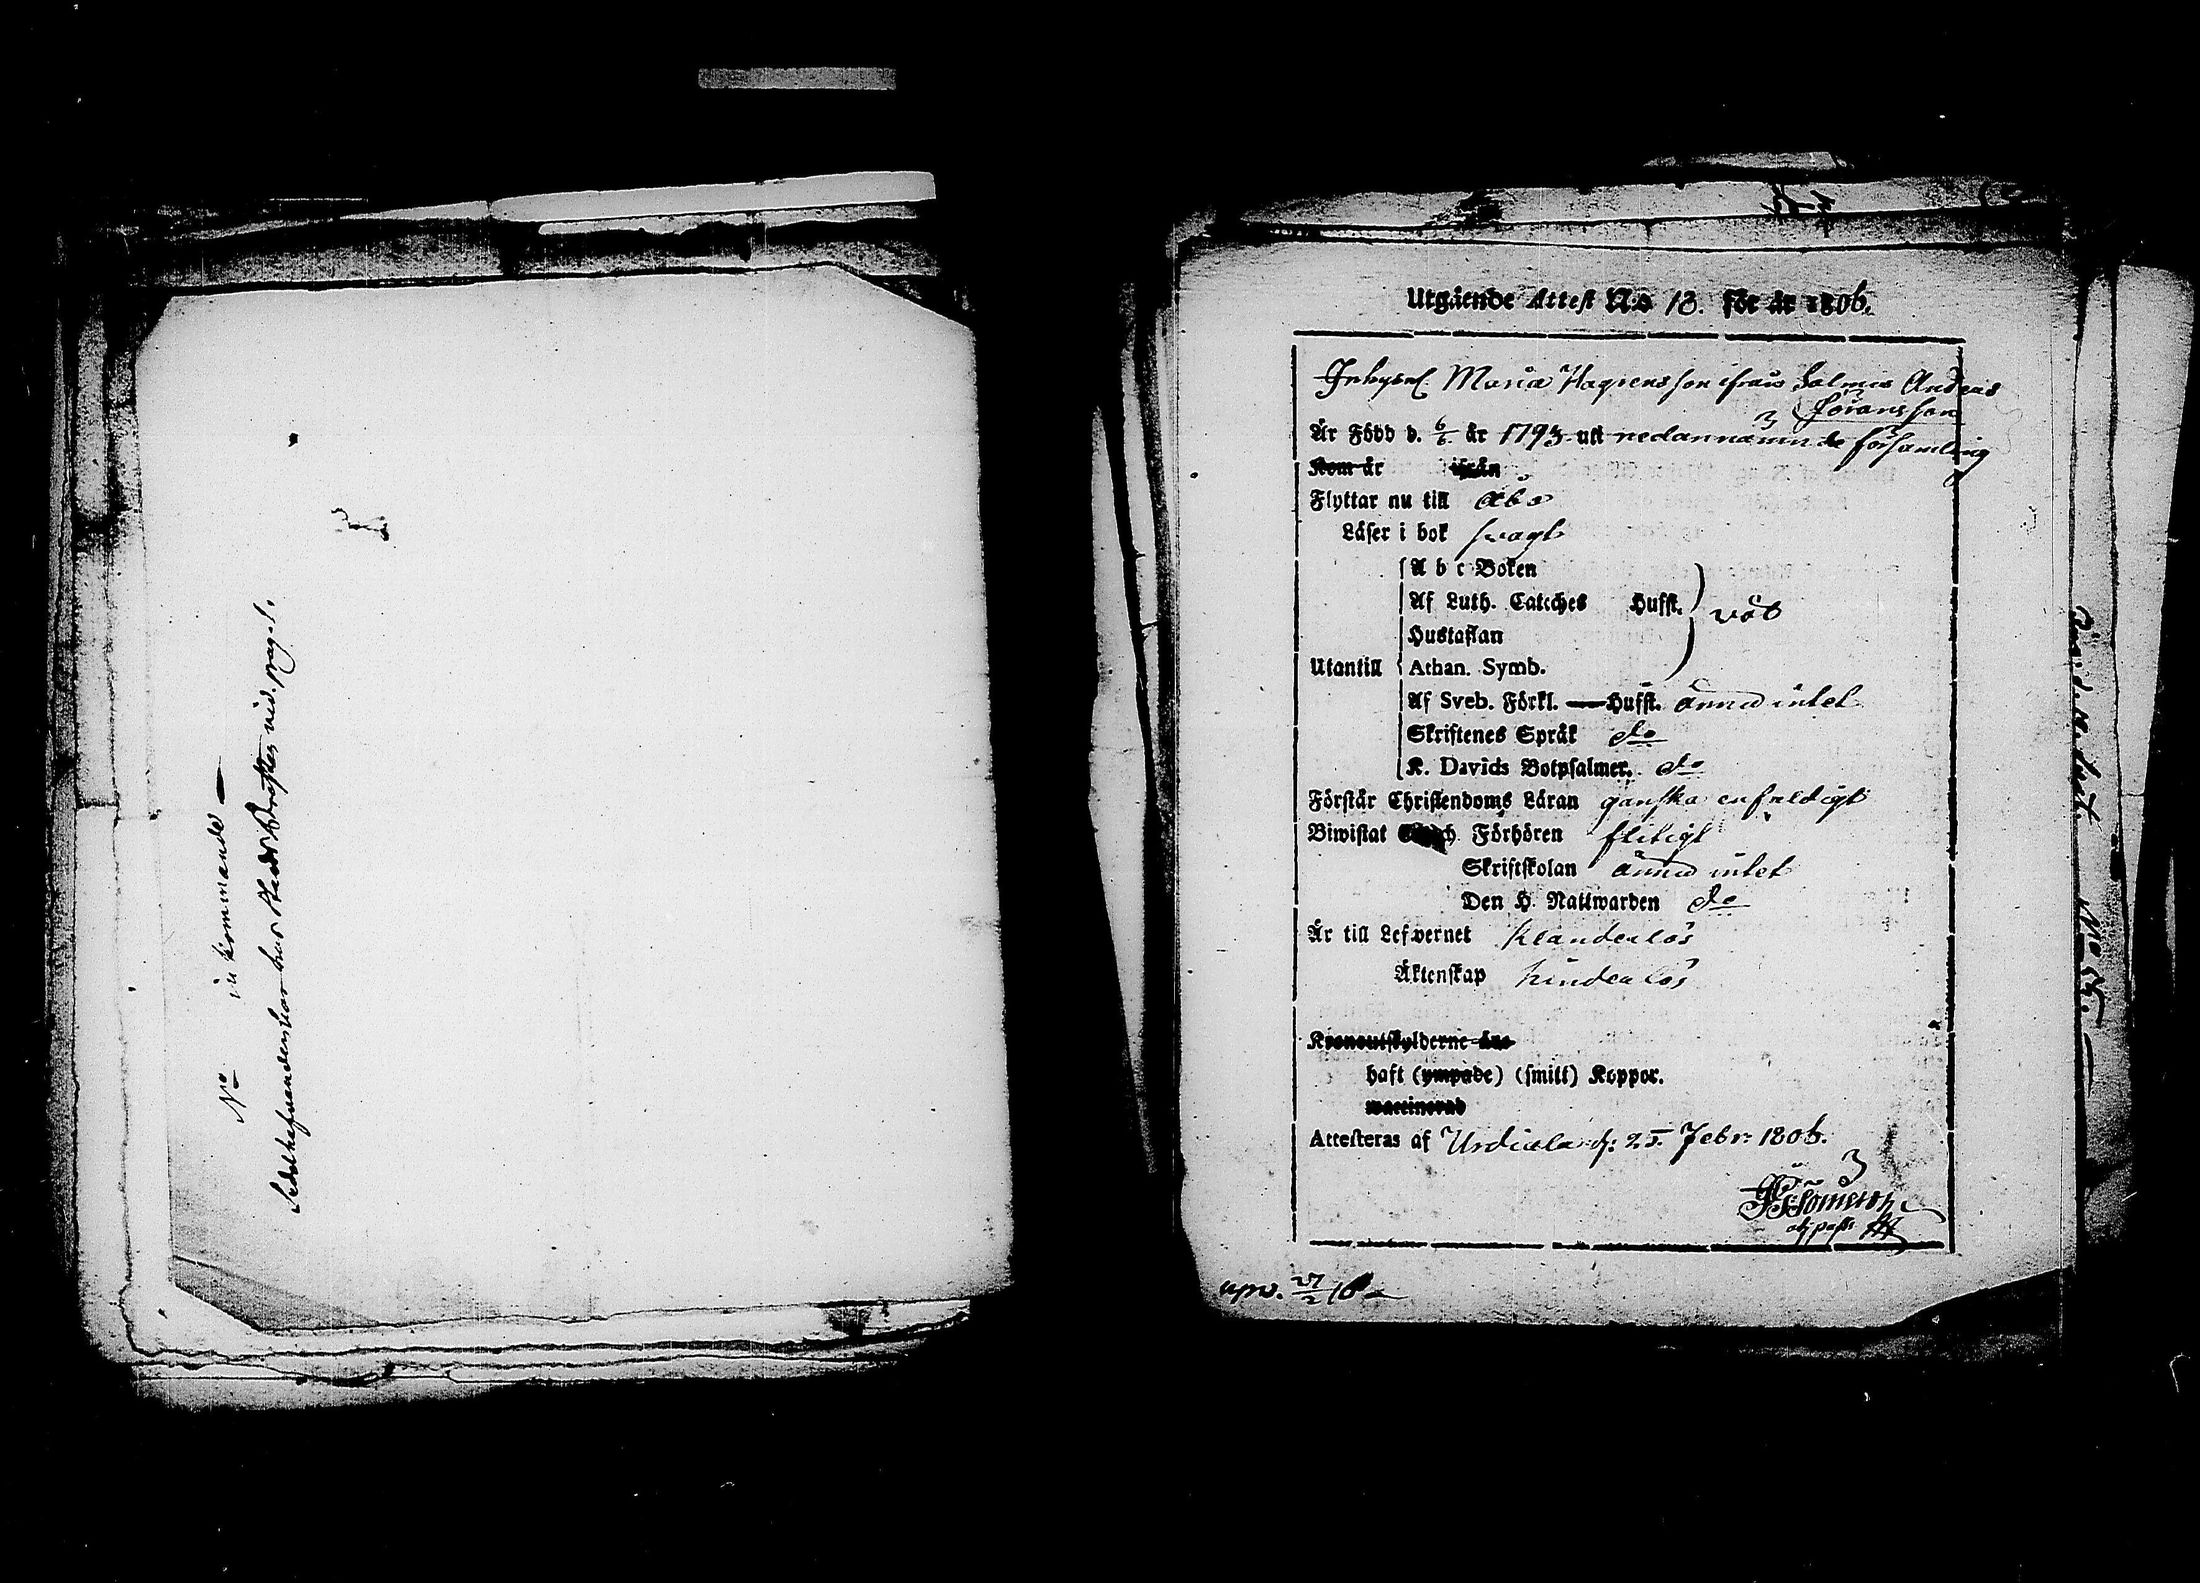 No inkommande
Sedelhafvanden har hus pag.
Utgående Attest No 13. för år 1806.
Inhyses Maria ifrån Salmis Anders
Göransson
Är Född d. 6/6 år 1793 uti nedannämnde församling
Kom år ifrån
Flyttar nu till Åbo
Läser i bok svagt
A b c Boken
Af Luth. Cateches Hufst. väl
Hustaflan
Utantill Athan. Symb.
Af Sveb. Förkl. Hufst. ännu intet
Skriftenes Språk do
K. Davids Botpsalmer. do
Förstår Christendoms Läran ganska enfaldigt
Biwistat Förhören flitigt
Skriftskolan ännu intet
Den H. Nattwarden do
Är till Lefvernet klanderlös
Äktenskap hinderlös
Kronoutskylderne äro
haft (ympade) (smitt) Koppor.
waccinerad
Attesteras af Urdiala d: 25 Febr: 1806.
adj. past.
upv. 27/2